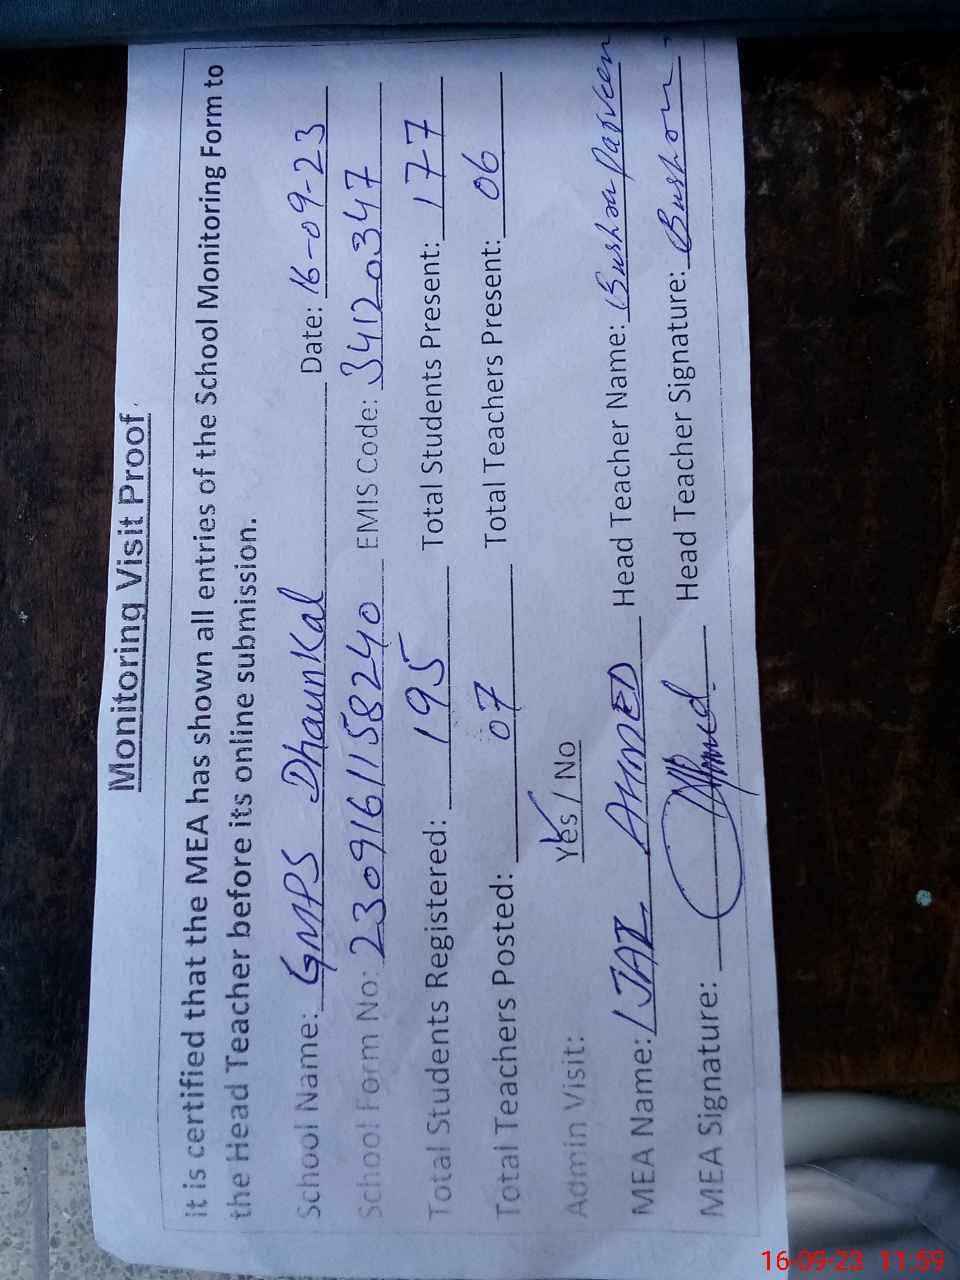 Monitoring Visit Proof
It is certified that the MEA has shown all entries of the School Monitoring Form to
the Head Teacher before its online submission.
School Name: GMPS Dhaunkal Date: 16-09-23
School Form No: 2309161158240 EMIS Code: 34120347
Total Students Registered: 195 Total Students Present: 177
Total Teachers Posted: 07 Total Teachers Present: 06
Admin Visit: Yes / No
MEA Name: IJAZ AHMED Head Teacher Name: Bushra Parveen
MEA Signature: Ahmed Head Teacher Signature:
16-09-23 11.59